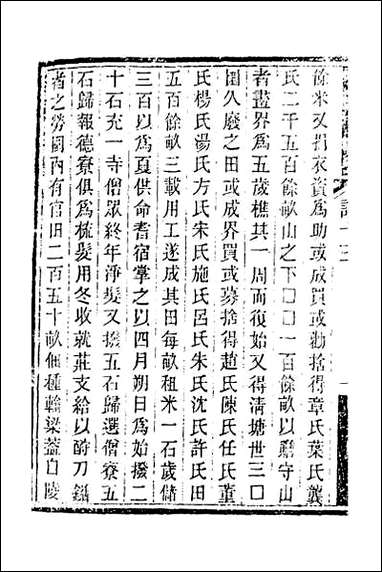 餘米又捐衣資爲助或成買或勸捨得章氏葉氏龔
氏二千五百餘畝山之下□□一百餘畝以贍守山
者盡界爲五歲樵其一周而復始又得淸塘世三□
圍久廢之田或成界買或募捨得趙氏陳氏任氏董
氏楊氏湯氏方氏宋氏施氏呂氏朱氏沈氏許氏田
五百餘畝三載用工遂成其田每畝租米一石歲儲
三百以爲夏供命耆宿掌之以四月朔日爲始撥二
十石充一寺僧眾終年淨髮又撥五石歸選僧寮五
石歸報德寮俱爲梳髮用冬收就莊支給以酧刀鑷
者之勞圍內有官田二百五十畝佃種輸梁蓋白陵